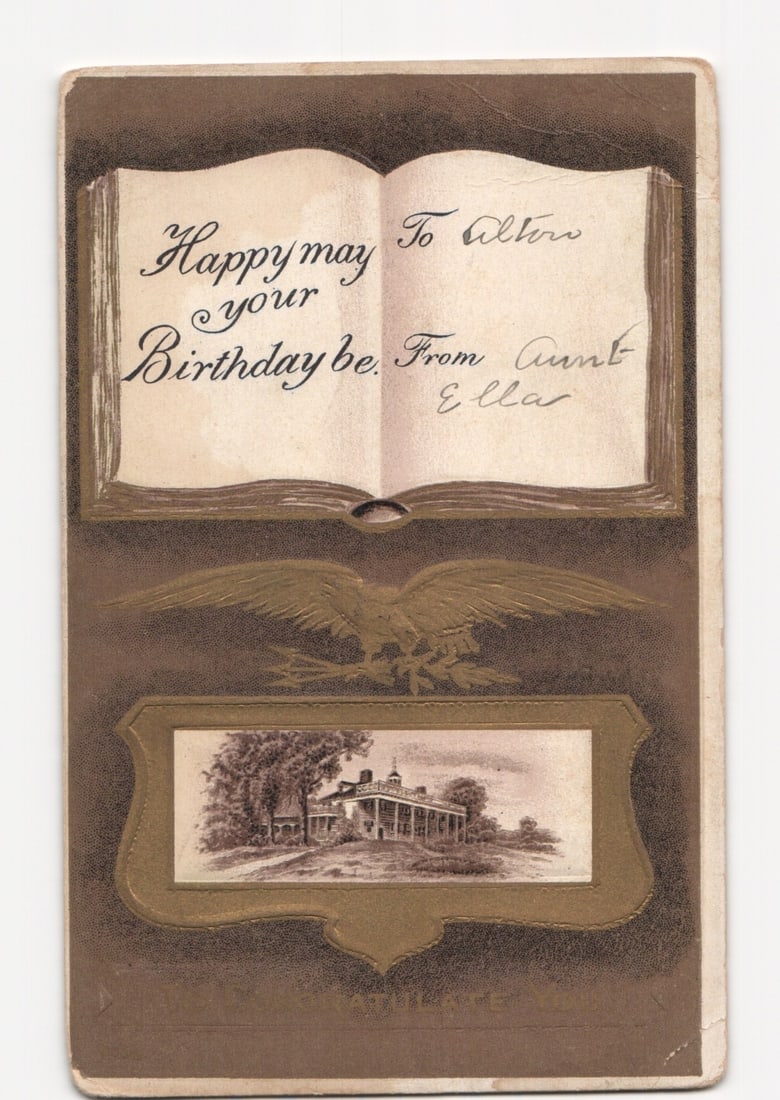 Happy may
your
Birthday be.
To Alton
From Aunt
Ella
To Congratulate You